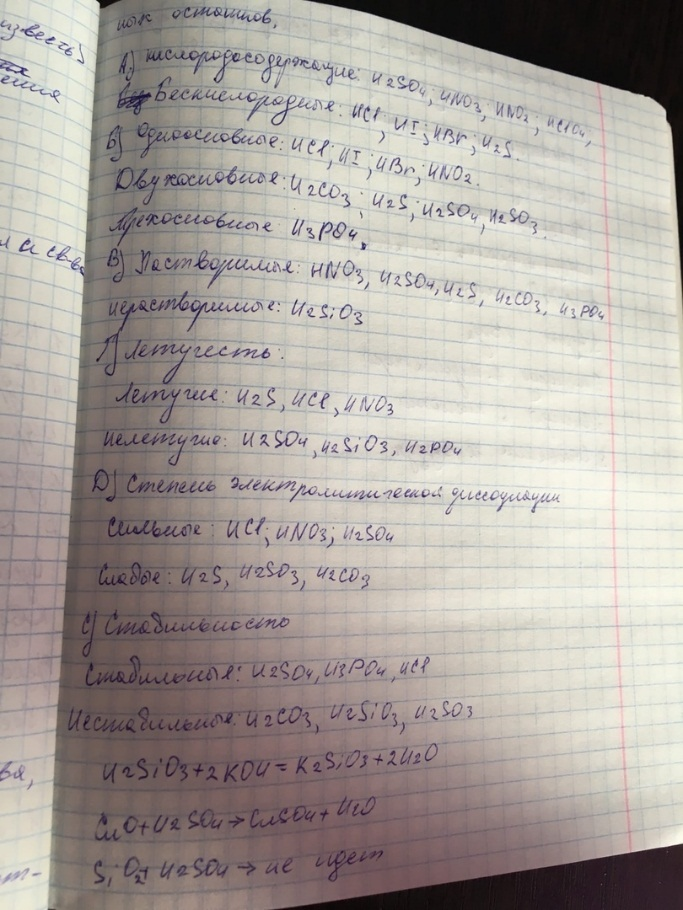 известь)
ения
л и св-ва
ва,
т-
ных остатков.
А) кислородосодержащие: H2SO4; HNO3; HNO2; HClO4,
Бескислородные: HCl; HI; HBr; H2S.
Б) Одноосновные: HCl; HI; HBr; HNO2.
Двухосновные: H2CO3; H2S; H2SO4, H2SO3.
трехосновные: H3PO4.
В) Растворимые: HNO3, H2SO4, H2S, H2CO3, H3PO4
нерастворимые: H2SiO3
Г) Летучесть:
Летучие: H2S, HCl, HNO3
нелетучие: H2SO4, H2SiO3, H2PO4
Д) Степень электролитической диссоциации
Сильные: HCl; HNO3; H2SO4
Слабые: H2S, H2SO3, H2CO3
С) Стабильность
Стабильные: H2SO4, H3PO4, HCl
Нестабильные: H2CO3, H2SiO3, H2SO3
H2SiO3+2KOH=K2SiO3+2H2O
CuO+H2SO4→CuSO4+H2O
SiO2+H2SO4→не идет